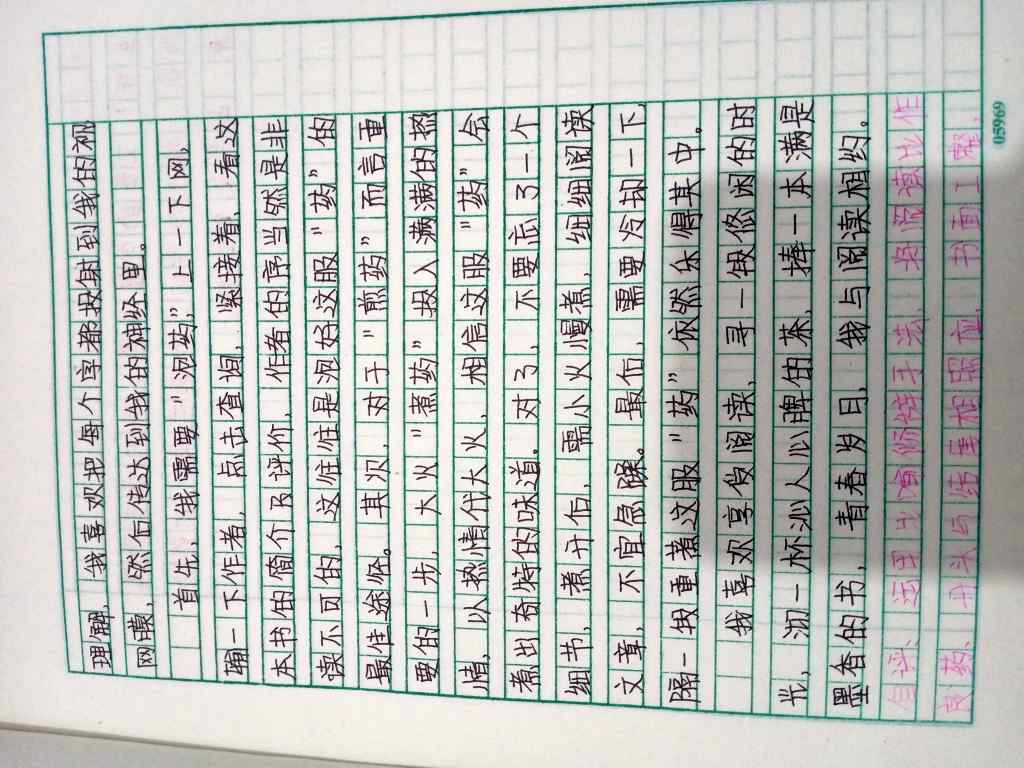 理融，我喜欢把每个字都投射到我的视
网膜，然后传达到我的神经里。
首先，我需要"泡药"，上一下网，
输一下作者，点击查询，紧接着，看这
本书的简介及评价，作者的序当然是非
读不可的，这往往是泡好这服"药"的
最佳途径。其次，对于"煎药"而言重
要的一步，大火"煮药"投入满满的热
情，以热情代大火，相信这服"药"会
煮出奇特的味道。对了，不要忘了一个
细节，煮开后，需小火慢煮，细细阅读
文章，不宜急躁。最后，需要冷却一下
隔一段重蒸这服"药"依然乐得其中。
我喜欢享受阅读，寻一段悠闲的时
光，沏一杯沁人心脾的茶，捧一本满是
墨香的书，青春岁月，我与阅读相约。
自评：运用比喻修辞手法，将阅读比作
良药，开头与结尾相照应，书面工整，
05969